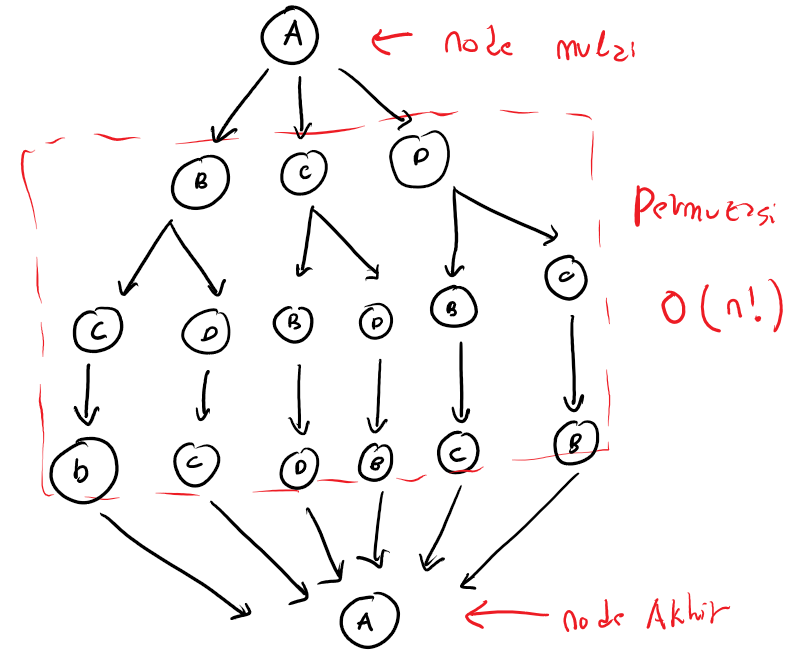 A
← node mulai
B C D
Permutasi
C
C D B D B
O(n!)
b C D B C B
A
← node Akhir